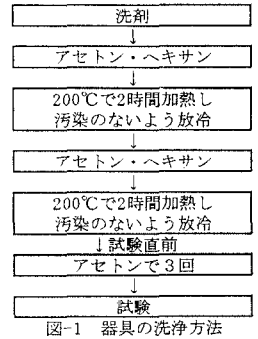 洗剤
↓
アセトン・ヘキサン
↓
200℃で2時間加熱し
汚染のないよう放冷
↓
アセトン・ヘキサン
↓
200℃で2時間加熱し
汚染のないよう放冷
↓試験直前
アセトンで3回
↓
試験
図-1 器具の洗浄方法